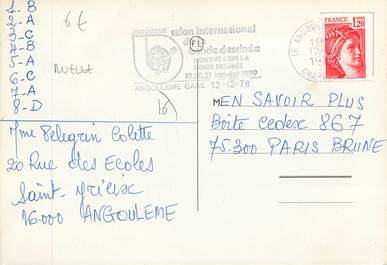 1-B
2-A
3-C
4-B
5-A
6-C
7-A
8-D
6€
salon international
bande dessinée
L'ENFANT DANS LA
BANDE DESSINEE
19.20.21 janvier 1979
ANGOULEME GARE 12-12-78
FL
FRANCE
1,20
Mme Pelegrin Colette
20 Rue des Ecoles
Saint-yrieix
16.000 ANGOULEME
EN SAVOIR PLUS
Boîte cedex 867
75.300 PARIS BRUNE